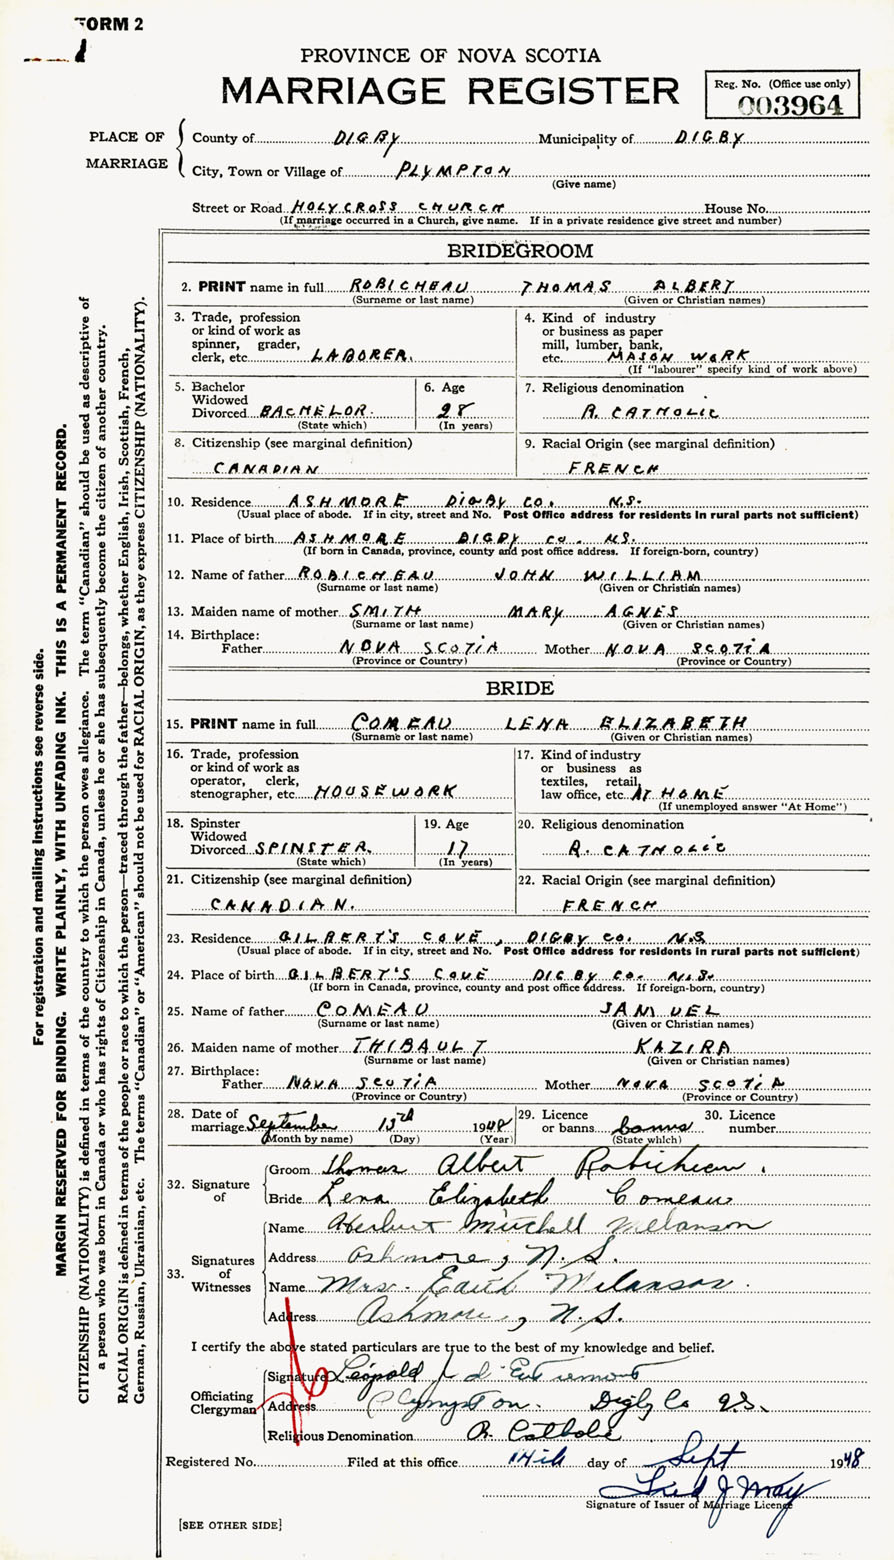 FORM 2
PROVINCE OF NOVA SCOTIA
MARRIAGE REGISTER
Reg. No. (Office use only)
003964
PLACE OF MARRIAGE
County of DIGBY Municipality of DIGBY
City, Town or Village of PLYMPTON
(Give name)
Street or Road HOLY CROSS CHURCH House No.
(If marriage occurred in a Church, give name. If in a private residence give street and number)
BRIDEGROOM
2. PRINT name in full ROBICHEAU THOMAS ALBERT
(Surname or last name) (Given or Christian names)
3. Trade, profession
or kind of work as
spinner, grader,
clerk, etc. LABORER.
4. Kind of industry
or business as paper
mill, lumber, bank,
etc. MASON WORK
(If "labourer" specify kind of work above)
5. Bachelor
Widowed
Divorced BACHELOR.
(State which)
6. Age
28
(In years)
7. Religious denomination
R. CATHOLIC
8. Citizenship (see marginal definition)
CANADIAN
9. Racial Origin (see marginal definition)
FRENCH
10. Residence ASHMORE DIGBY CO. N.S.
(Usual place of abode. If in city, street and No. Post Office address for residents in rural parts not sufficient)
11. Place of birth ASHMORE DIGBY CO. N.S.
(If born in Canada, province, county and post office address. If foreign-born, country)
12. Name of father ROBICHEAU JOHN WILLIAM
(Surname or last name) (Given or Christian names)
13. Maiden name of mother SMITH MARY AGNES
(Surname or last name) (Given or Christian names)
14. Birthplace:
Father NOVA SCOTIA Mother NOVA SCOTIA
(Province or Country) (Province or Country)
BRIDE
15. PRINT name in full COMEAU LENA ELIZABETH
(Surname or last name) (Given or Christian names)
16. Trade, profession
or kind of work as
operator, clerk,
stenographer, etc. HOUSEWORK
17. Kind of industry
or business as
textiles, retail,
law office, etc. AT HOME
(If unemployed answer "At Home")
18. Spinster
Widowed
Divorced SPINSTER.
(State which)
19. Age
17
(In years)
20. Religious denomination
R. CATHOLIC
21. Citizenship (see marginal definition)
CANADIAN.
22. Racial Origin (see marginal definition)
FRENCH
23. Residence GILBERT'S COVE, DIGBY CO. N.S
(Usual place of abode. If in city, street and No. Post Office address for residents in rural parts not sufficient)
24. Place of birth GILBERT'S COVE DIGBY CO. N.S.
(If born in Canada, province, county and post office address. If foreign-born, country)
25. Name of father COMEAU SAMUEL
(Surname or last name) (Given or Christian names)
26. Maiden name of mother THIBAULT KAZIRA
(Surname or last name) (Given or Christian names)
27. Birthplace:
Father NOVA SCOTIA Mother NOVA SCOTIA
(Province or Country) (Province or Country)
28. Date of
marriage September 13th 1948
(Month by name) (Day) (Year)
29. Licence
or banns banns
(State which)
30. Licence
number
32. Signature of
Groom Thomas Albert Robicheau.
Bride Lena Elizabeth Comeau
33. Signatures of Witnesses
Name Herbert Mitchell Melanson
Address Ashmore, N.S.
Name Mrs. Edith Melanson.
Address Ashmore, N.S.
I certify the above stated particulars are true to the best of my knowledge and belief.
Officiating Clergyman
Signature Léopold J. d'Entremont
Address Plympton. Digby Co N.S.
Religious Denomination R. Catholic
Registered No. Filed at this office 14th day of Sept 1948
Fred J May
Signature of Issuer of Marriage Licence
[SEE OTHER SIDE]
For registration and mailing instructions see reverse side.
MARGIN RESERVED FOR BINDING. WRITE PLAINLY, WITH UNFADING INK. THIS IS A PERMANENT RECORD.
CITIZENSHIP (NATIONALITY) is defined in terms of the country to which the person owes allegiance. The term "Canadian" should be used as descriptive of
a person who was born in Canada or who has rights of Citizenship in Canada, unless he or she has subsequently become the citizen of another country.
RACIAL ORIGIN is defined in terms of the people or race to which the person—traced through the father—belongs, whether English, Irish, Scottish, French,
German, Russian, Ukrainian, etc. The terms "Canadian" or "American" should not be used for RACIAL ORIGIN, as they express CITIZENSHIP (NATIONALITY).